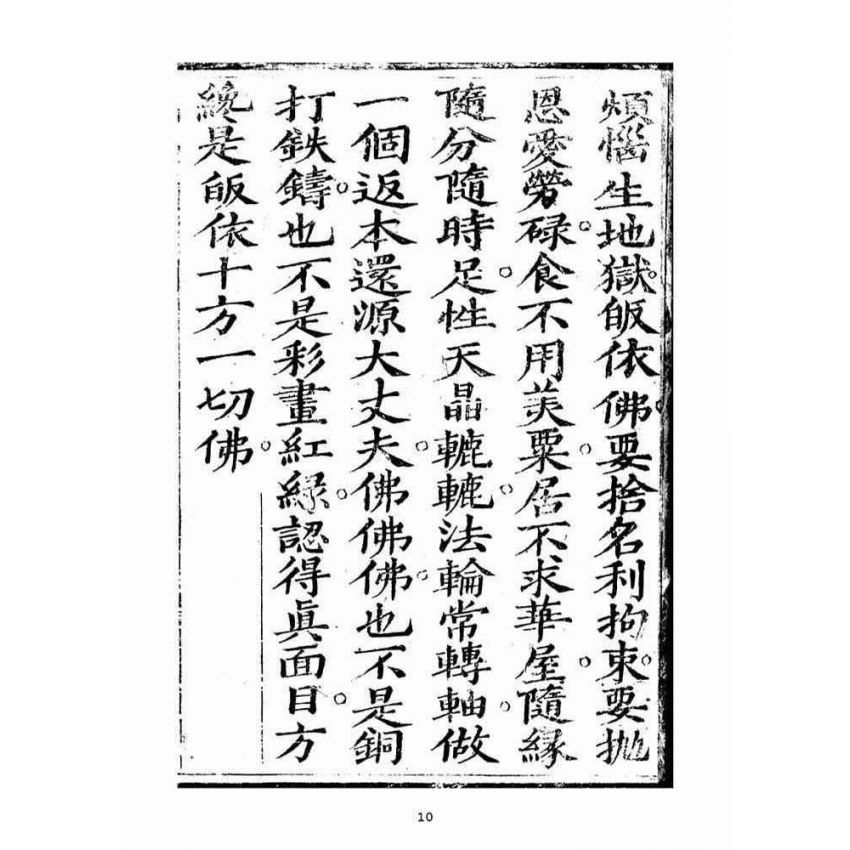 煩惱生地獄皈依佛要捨名利拘束要拋
恩愛勞碌食不用美粟居不求華屋隨緣
隨分隨時足性天晶轆轆法輪常轉軸做
一個返本還源大丈夫佛佛佛也不是銅
打鉄鑄也不是彩畫紅綠認得眞面目方
纔是皈依十方一切佛
10